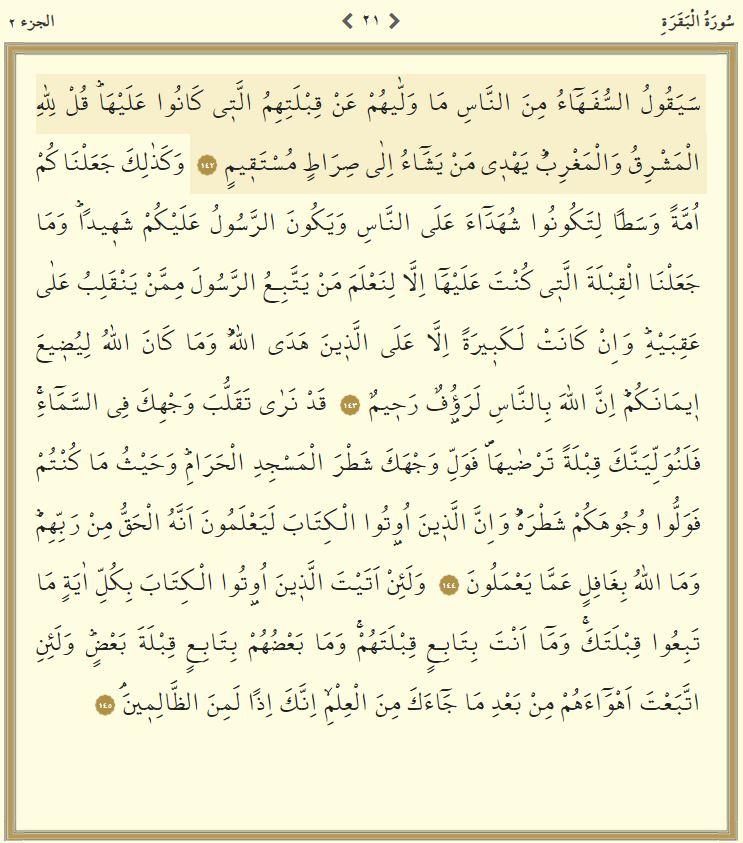 سُورَةُ الْبَقَرَةِ ٢١ الجزء ٢
سَيَقُولُ السُّفَهَٓاءُ مِنَ النَّاسِ مَا وَلّٰيهُمْ عَنْ قِبْلَتِهِمُ الَّتٖي كَانُوا عَلَيْهَاؕ قُلْ لِلّٰهِ
الْمَشْرِقُ وَالْمَغْرِبُؕ يَهْدٖي مَنْ يَشَٓاءُ اِلٰى صِرَاطٍ مُسْتَقٖيمٍ ﴿١٤٢﴾ وَكَذٰلِكَ جَعَلْنَاكُمْ
اُمَّةً وَسَطاً لِتَكُونُوا شُهَدَٓاءَ عَلَى النَّاسِ وَيَكُونَ الرَّسُولُ عَلَيْكُمْ شَهٖيداًؕ وَمَا
جَعَلْنَا الْقِبْلَةَ الَّتٖي كُنْتَ عَلَيْهَٓا اِلَّا لِنَعْلَمَ مَنْ يَتَّبِعُ الرَّسُولَ مِمَّنْ يَنْقَلِبُ عَلٰى
عَقِبَيْهِؕ وَاِنْ كَانَتْ لَكَبٖيرَةً اِلَّا عَلَى الَّذٖينَ هَدَى اللّٰهُؕ وَمَا كَانَ اللّٰهُ لِيُضٖيعَ
اٖيمَانَكُمْؕ اِنَّ اللّٰهَ بِالنَّاسِ لَرَؤُ۫فٌ رَحٖيمٌ ﴿١٤٣﴾ قَدْ نَرٰى تَقَلُّبَ وَجْهِكَ فِى السَّمَٓاءِۚ
فَلَنُوَلِّيَنَّكَ قِبْلَةً تَرْضٰيهَاࣕ فَوَلِّ وَجْهَكَ شَطْرَ الْمَسْجِدِ الْحَرَامِؕ وَحَيْثُ مَا كُنْتُمْ
فَوَلُّوا وُجُوهَكُمْ شَطْرَهُؕ وَاِنَّ الَّذٖينَ اُو۫تُوا الْكِتَابَ لَيَعْلَمُونَ اَنَّهُ الْحَقُّ مِنْ رَبِّهِمْؕ
وَمَا اللّٰهُ بِغَافِلٍ عَمَّا يَعْمَلُونَ ﴿١٤٤﴾ وَلَئِنْ اَتَيْتَ الَّذٖينَ اُو۫تُوا الْكِتَابَ بِكُلِّ اٰيَةٍ مَا
تَبِعُوا قِبْلَتَكَۚ وَمَٓا اَنْتَ بِتَابِعٍ قِبْلَتَهُمْۚ وَمَا بَعْضُهُمْ بِتَابِعٍ قِبْلَةَ بَعْضٍؕ وَلَئِنِ
اتَّبَعْتَ اَهْوَٓاءَهُمْ مِنْ بَعْدِ مَا جَٓاءَكَ مِنَ الْعِلْمِۙ اِنَّكَ اِذًا لَمِنَ الظَّالِمٖينَۢ ﴿١٤٥﴾